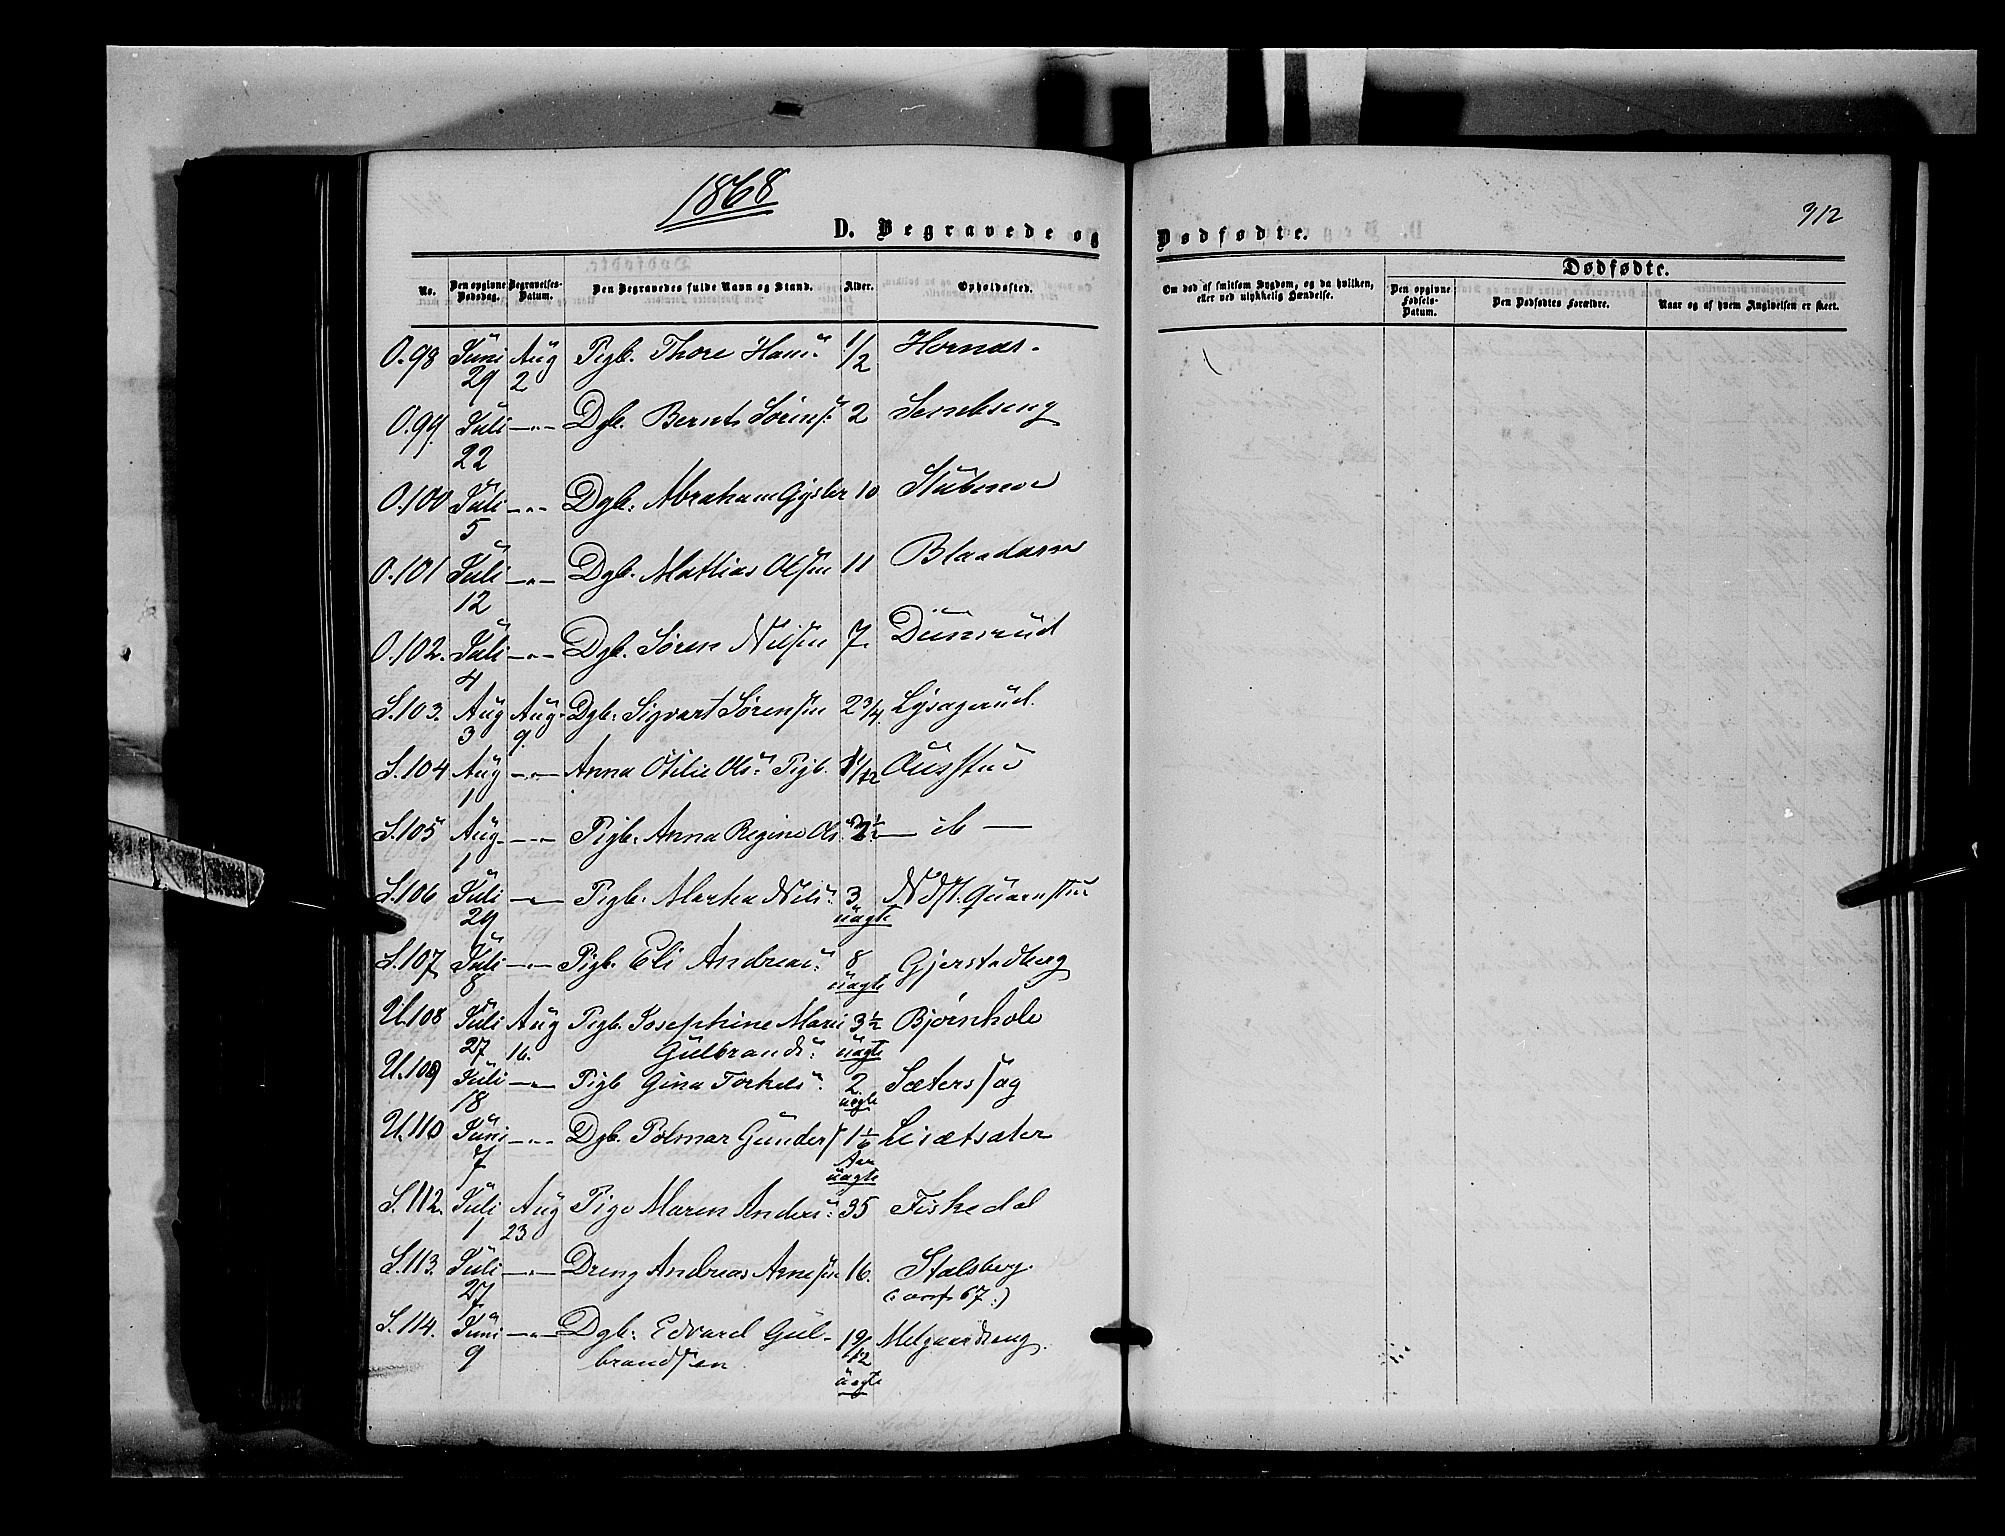 1868
312
D. Begravede og Dødfødte.
No. Den opgivne Dødsdag. Begravelses-Datum. Den Begravedes fulde Navn og Stand. Alder. Opholdssted.
Om død af smitsom Sygdom, og da hvilken, eller ved ulykkelig Hændelse.
Dødfødte.
Den opgivne Fødsels-Datum. Den Dødfødtes Forældre. Naar og af hvem Angivelsen er skeet.
O.98 Juni 29 Aug 2 Pigb. Thore Hans 1/2 Hornæs.
O.99 Juli 22 -"- Dgb. Bernt Sörens. 2
O.100 Juli 5 -"- Dgb. Abraham Gysler 10
O.101 Juli 12 -"- Dgb. Mattias Olsen 11
O.102. Juli 4 -"- Dgb. Sören Nilsen 7.
S.103. Aug 3 Aug. 9. Dgb. Sigvart Sørensen 2 3/4.
S.104 Aug 1 -"- Anna Otilie Ols. Pigb.
S.105 Aug. 1 -"- Pigb. Anna Regine Ols. — ib —
S.106 Juli 29 -"- Pigb. Martea Nils. 3 uægte
S.107 Juli 8 -"- Pigb. Eli Andreas. 8 uægte Gjerstadberg
U.108 Juli 27 Aug 16. Pigb. Josephine Marie 3 1/2 Bjørnhole
Gulbrands. uægte
U.109 Juli 18 -"- Pigb Gina Torkels. 2 uægte Sæterssag
U.110 Juni 7 -"- Dgb. Polmar Gunders 1 1/6 Aar uægte
S.112. Juli 1 Aug 23 Pige Maren Anders. 35 Fiskedal
S.113. Juli 27 -"- Dreng Andreas Arnesen 16. Stalsberg.
S.114. Juni 9 -"- Dgb. Edvard Gul- 19/12 uægte Melgaardseng.
brandsen